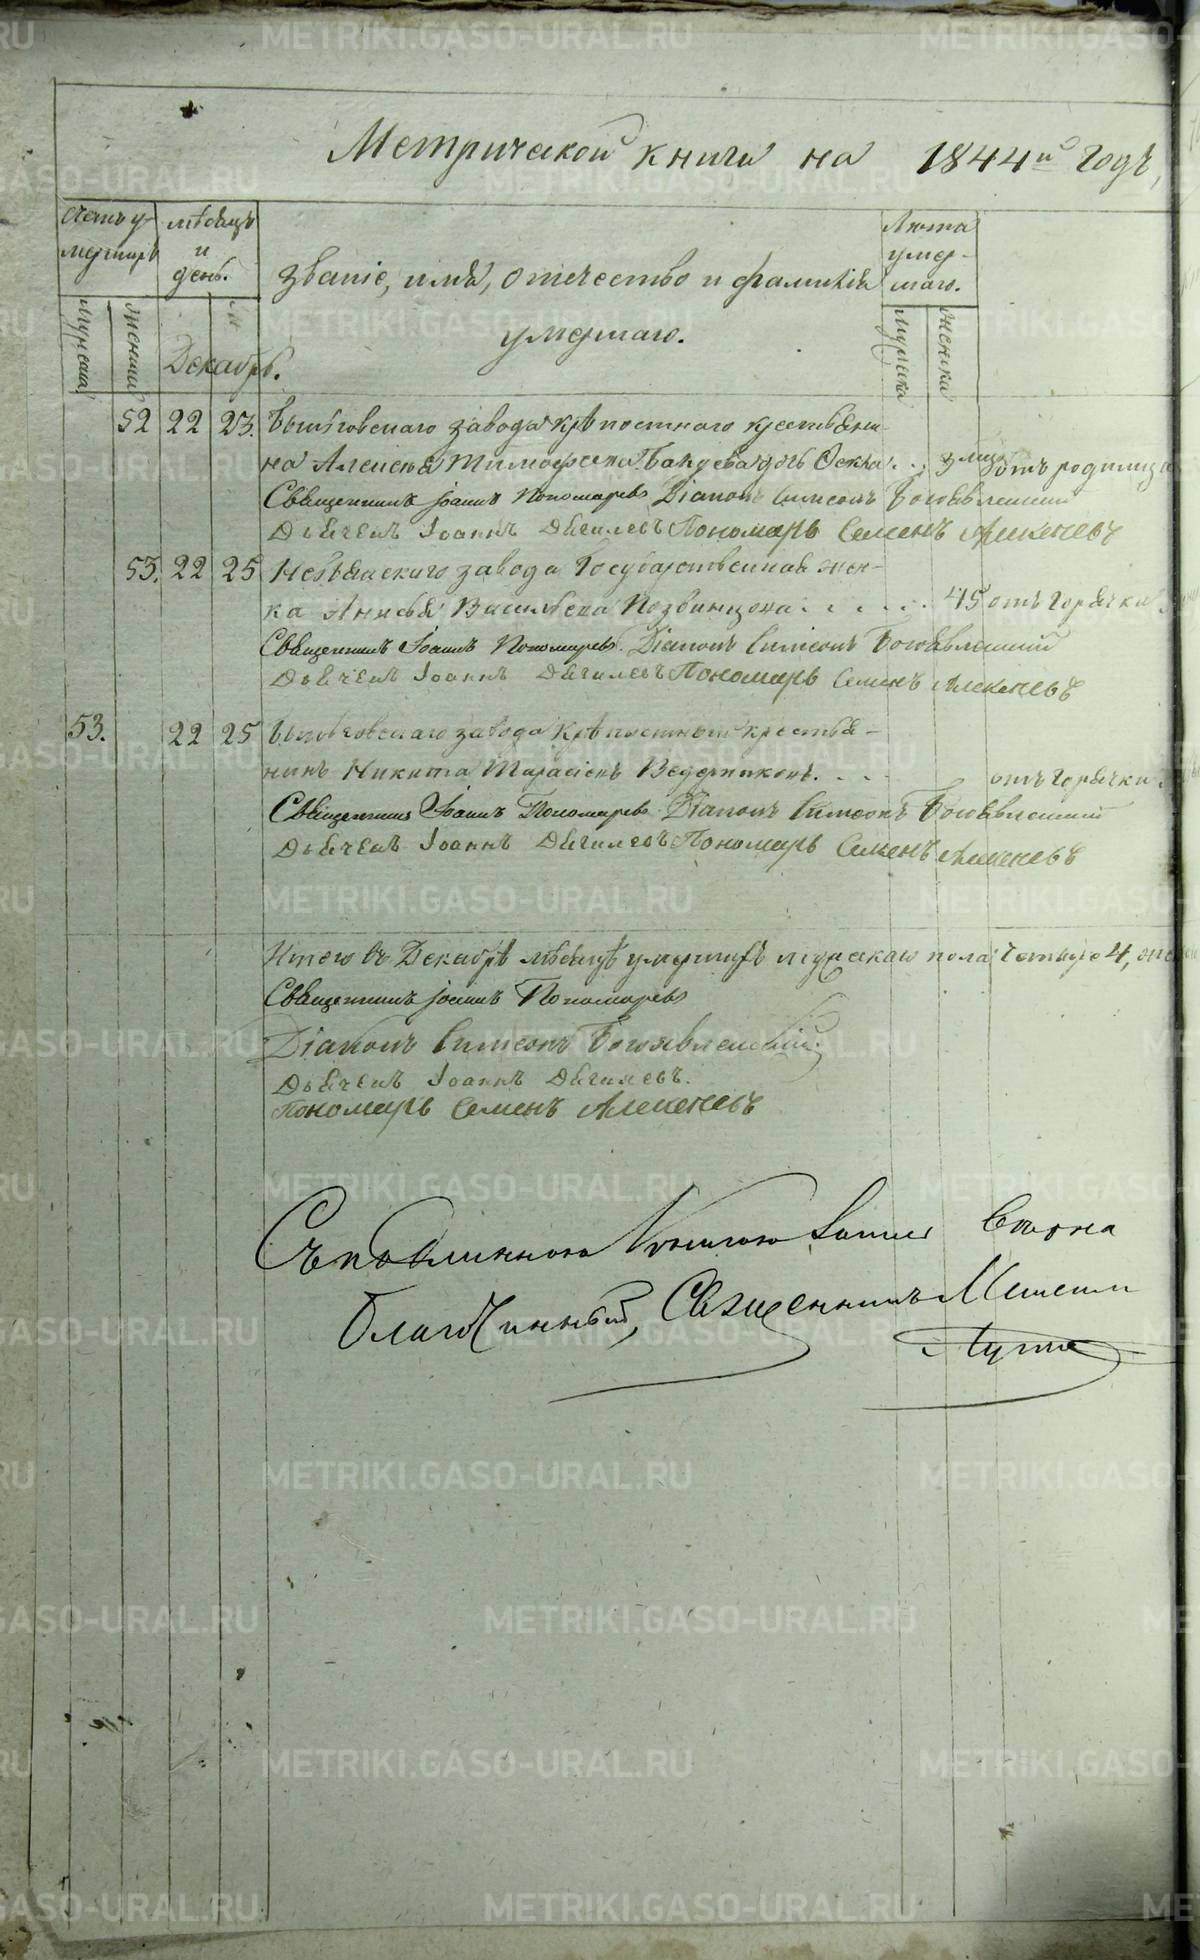 Метрической книги на 1844й годъ,
Счетъ умершихъ
мѣсяцъ и день.
Званіе, имя, отчество и фамилія умершаго.
Лѣта умершаго.
мужска
женска
Декабрь.
мужска
женска
52 22 23. завода крѣпостнаго крестьяни-
на Алексея Тимофеева дочь Фекла . . 3 мѣс отъ родимца
Священникъ Іоаннъ Пономаревъ Діаконъ Симеонъ Богоявленскій
Дьячекъ Іоаннъ Дягилевъ Пономарь Семенъ
53. 22 25 Невьянскаго завода Государственная жен-
ка Анисья Васильева . . . . . 45 отъ горячки
Священникъ Іоаннъ Пономаревъ. Діаконъ Симеонъ Богоявленскій
Дьячекъ Іоаннъ Дягилевъ Пономарь Семенъ
53. 22 25 завода крѣпостный крестья-
нинъ Никита Тарасіевъ Ведерниковъ. . . . отъ горячки
Священникъ Іоаннъ Пономаревъ Діаконъ Симеонъ Богоявленскій
Дьячекъ Іоаннъ Дягилевъ Пономарь Семенъ
Итого въ Декабрѣ мѣсяцѣ умершихъ мужскаго пола четыре 4,
Священникъ Іоаннъ Пономаревъ
Діаконъ Симеонъ Богоявленскій.
Дьячекъ Іоаннъ Дягилевъ.
Пономарь Семенъ
Съ подлинною книгою копія вѣрна
Благочинный, Священникъ
METRIKI.GASO-URAL.RU